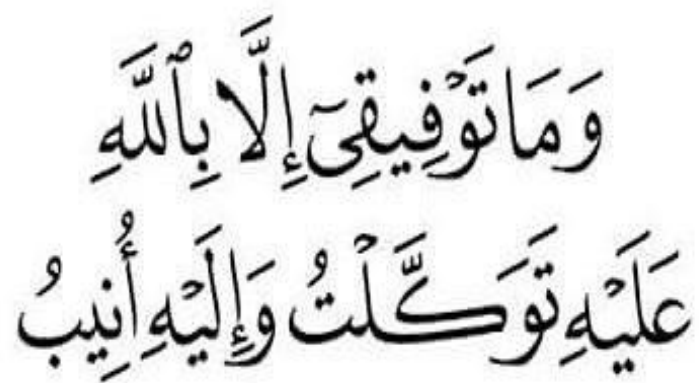 وَمَا تَوْفِيقِىٓ إِلَّا بِٱللَّهِ
عَلَيْهِ تَوَكَّلْتُ وَإِلَيْهِ أُنِيبُ